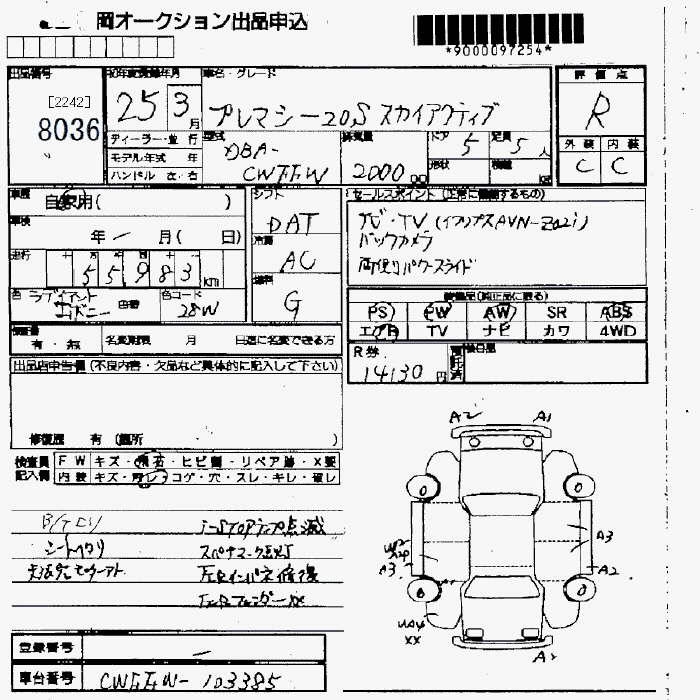 岡オークション出品申込
*9000097254*
出品番号
[2242]
8036
年月
25 3月
ディーラー・並 行
モデル年式 年
ハンドル 左・右
車名・グレード
プレマシー20S スカイアクティブ
型式
DBA-
CWFFW
排気量
2000 cc
ドア
5
定員
5人
形状
積載
評価点
R
外装 内装
C C
車歴
自家用( )
車検
年 月( 日)
走行
55983 km
色
ラディアント
エボニー
色コード
28W
シフト
DAT
冷房
AC
燃料
G
セールスポイント (正常に機能するもの)
ナビ・TV (イクリプスAVN-Z02i)
バックカメラ
両側パワースライド
装備品(純正品に限る)
PS PW AW SR ABS
エアB TV ナビ カワ 4WD
有・無 名変期限 月 日迄に名変できる方
R券
14130円
預託済
検査員
出品店申告欄 (不良内容・欠品など具体的に記入して下さい)
修復歴 有 (箇所 )
検査員
記入欄
FW キズ・飛石・ヒビ割・リペア跡・X要
内装 キズ・汚レ・コゲ・穴・スレ・キレ・破レ
シートヘタリ
i-STOPランプ点滅
スパナマーク点灯
左Rインパネ修復
A2 A1
A3
A2
A3
XX
登録番号
車台番号
CWFFW-103385